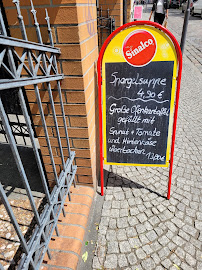 Sinalco
Spargelsuppe
4,90 €
Große Ofenkartoffel
gefüllt mit
Spinat + Tomate
und Hirtenkäse
überbacken
13,00 €